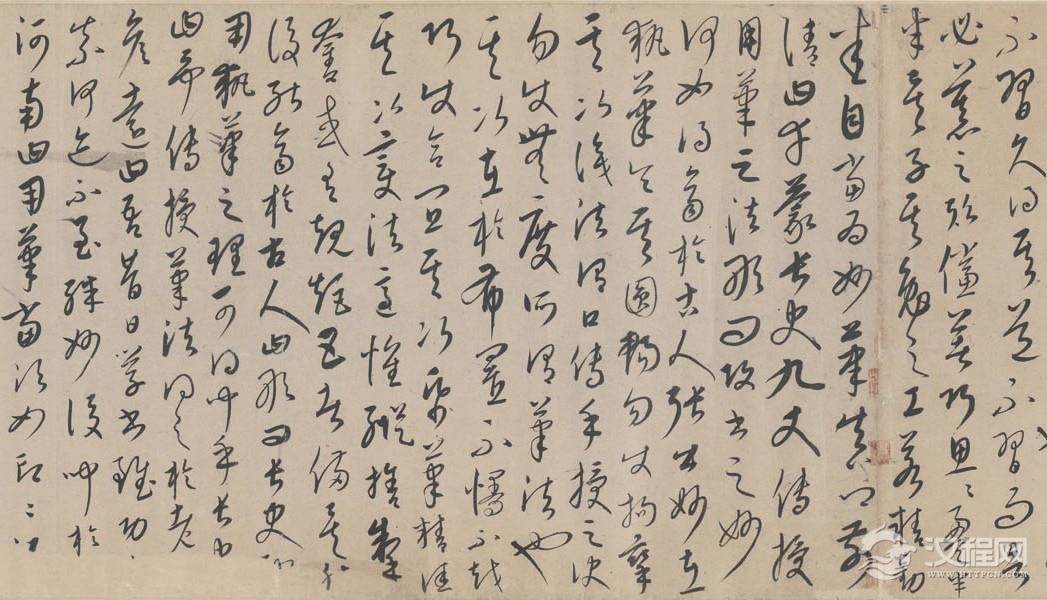 不習久得其道不習而言
必慕之歟儻著巧思思盈半
矣子其勉之工若精勤
悉自當為妙筆真卿前
請曰幸蒙長史九丈傳授
用筆之法敢問攻書之妙
何如得齊於古人張公妙在
執筆令其圓暢勿使拘攣
其次識法謂口傳手授之訣
勿使無度所謂筆法也
其次在於布置不慢不越
巧使合宜其次紙筆精佳
其次變法適懷縱捨掣
奪咸有規矩五者備矣然
後能齊於古人曰敢問長史所
用執筆之理可得聞乎長史
曰予傳授筆法得之於老
彥遠曰吾昔日學書雖功
奈何迹不至殊妙後聞於
河南曰用筆當須如印印
汉程网
WWW.HTTPCN.COM